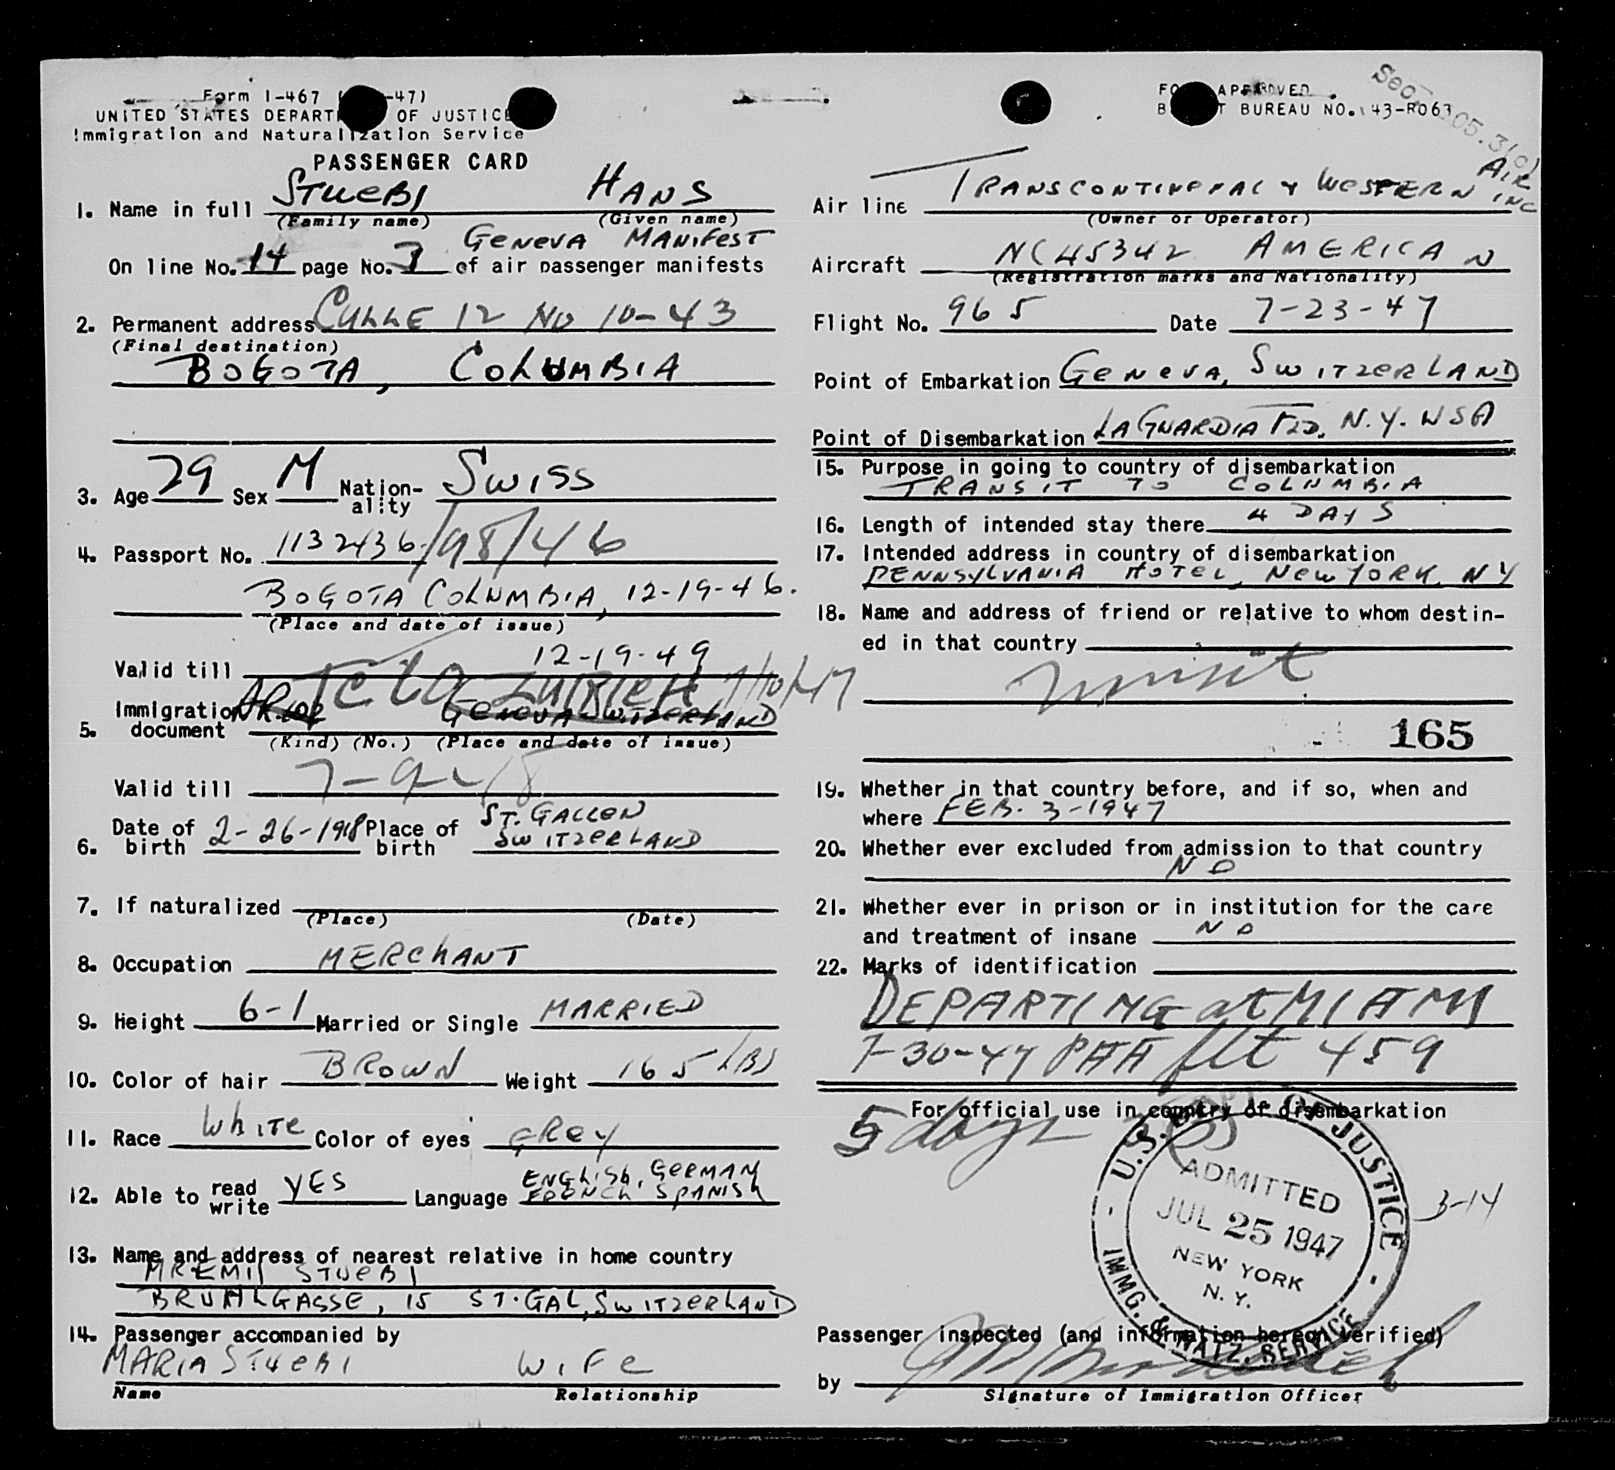 Form I-467 -47)
UNITED STATES DEPART OF JUSTICE
Immigration and Naturalization Service
PASSENGER CARD
FO APPROVED
B T BUREAU NO. 43-R063
Sec. 05.3(c)
1. Name in full STUEBI HANS
(Family name) (Given name)
GENEVA MANIFEST
On line No. 14 page No. 3 of air passenger manifests
2. Permanent address CALLE 12 NO 10-43
(Final destination)
BOGOTA, COLUMBIA
3. Age 29 Sex M Nation-ality SWISS
4. Passport No. 1132436/98/46
BOGOTA COLUMBIA, 12-19-46.
(Place and date of issue)
Valid till 12-19-49
5. Immigration document GENEVA SWITZERLAND
(Kind) (No.) (Place and date of issue)
Valid till
6. Date of birth 2-26-1918 Place of birth ST. GALLEN SWITZERLAND
7. If naturalized
(Place) (Date)
8. Occupation MERCHANT
9. Height 6-1 Married or Single MARRIED
10. Color of hair BROWN Weight 165 LBS
11. Race WHITE Color of eyes GREY
12. Able to read write YES Language ENGLISH, GERMAN FRENCH SPANISH
13. Name and address of nearest relative in home country
MR EMIL STUEBI
BRUHLGASSE, 15 ST. GAL, SWITZERLAND
14. Passenger accompanied by
MARIA STUEBI WIFE
Name Relationship
Air line TRANSCONTINENTAL & WESTERN AIR INC
(Owner or Operator)
Aircraft NC45342 AMERICAN
(Registration marks and Nationality)
Flight No. 965 Date 7-23-47
Point of Embarkation GENEVA, SWITZERLAND
Point of Disembarkation LA GUARDIA FLD. N.Y. USA
15. Purpose in going to country of disembarkation
TRANSIT TO COLUMBIA
16. Length of intended stay there 4 DAYS
17. Intended address in country of disembarkation
PENNSYLVANIA HOTEL, NEW YORK, NY
18. Name and address of friend or relative to whom destin-
ed in that country
165
19. Whether in that country before, and if so, when and
where FEB. 3-1947
20. Whether ever excluded from admission to that country
NO
21. Whether ever in prison or in institution for the care
and treatment of insane NO
22. Marks of identification
DEPARTING at MIAMI
7-30-47 PAA flt 459
For official use in country of disembarkation
5 days
U.S. DEPT. OF JUSTICE
ADMITTED
JUL 25 1947
NEW YORK
N.Y.
IMMG. & NATZ. SERVICE
3-14
Passenger inspected (and information hereon verified)
by
Signature of Immigration Officer